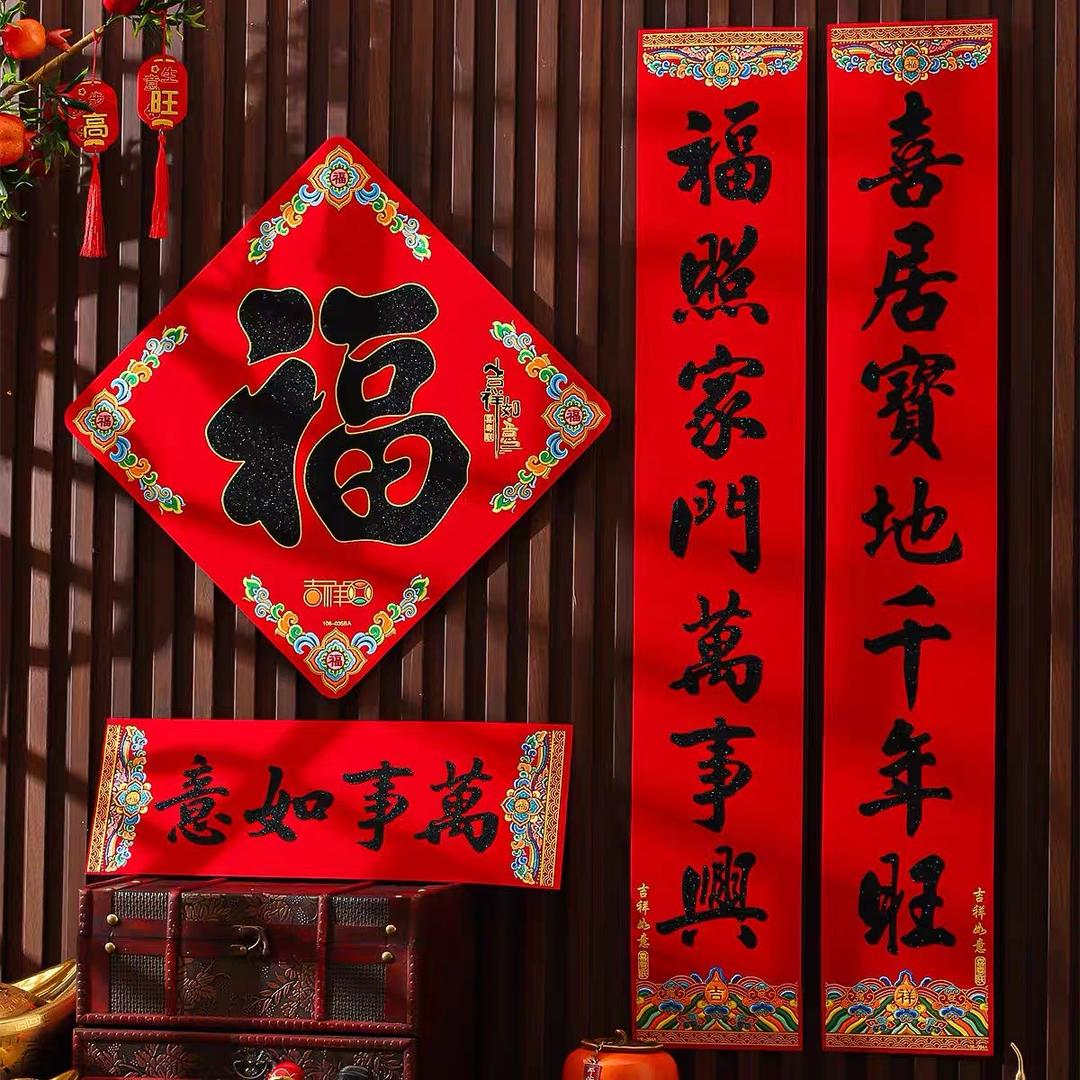 喜居寶地千年旺
吉祥如意
祥
福照家門萬事興
吉祥如意
吉
福
福
福
福
福
吉祥如意
吉祥
萬事如意
生意旺
步高